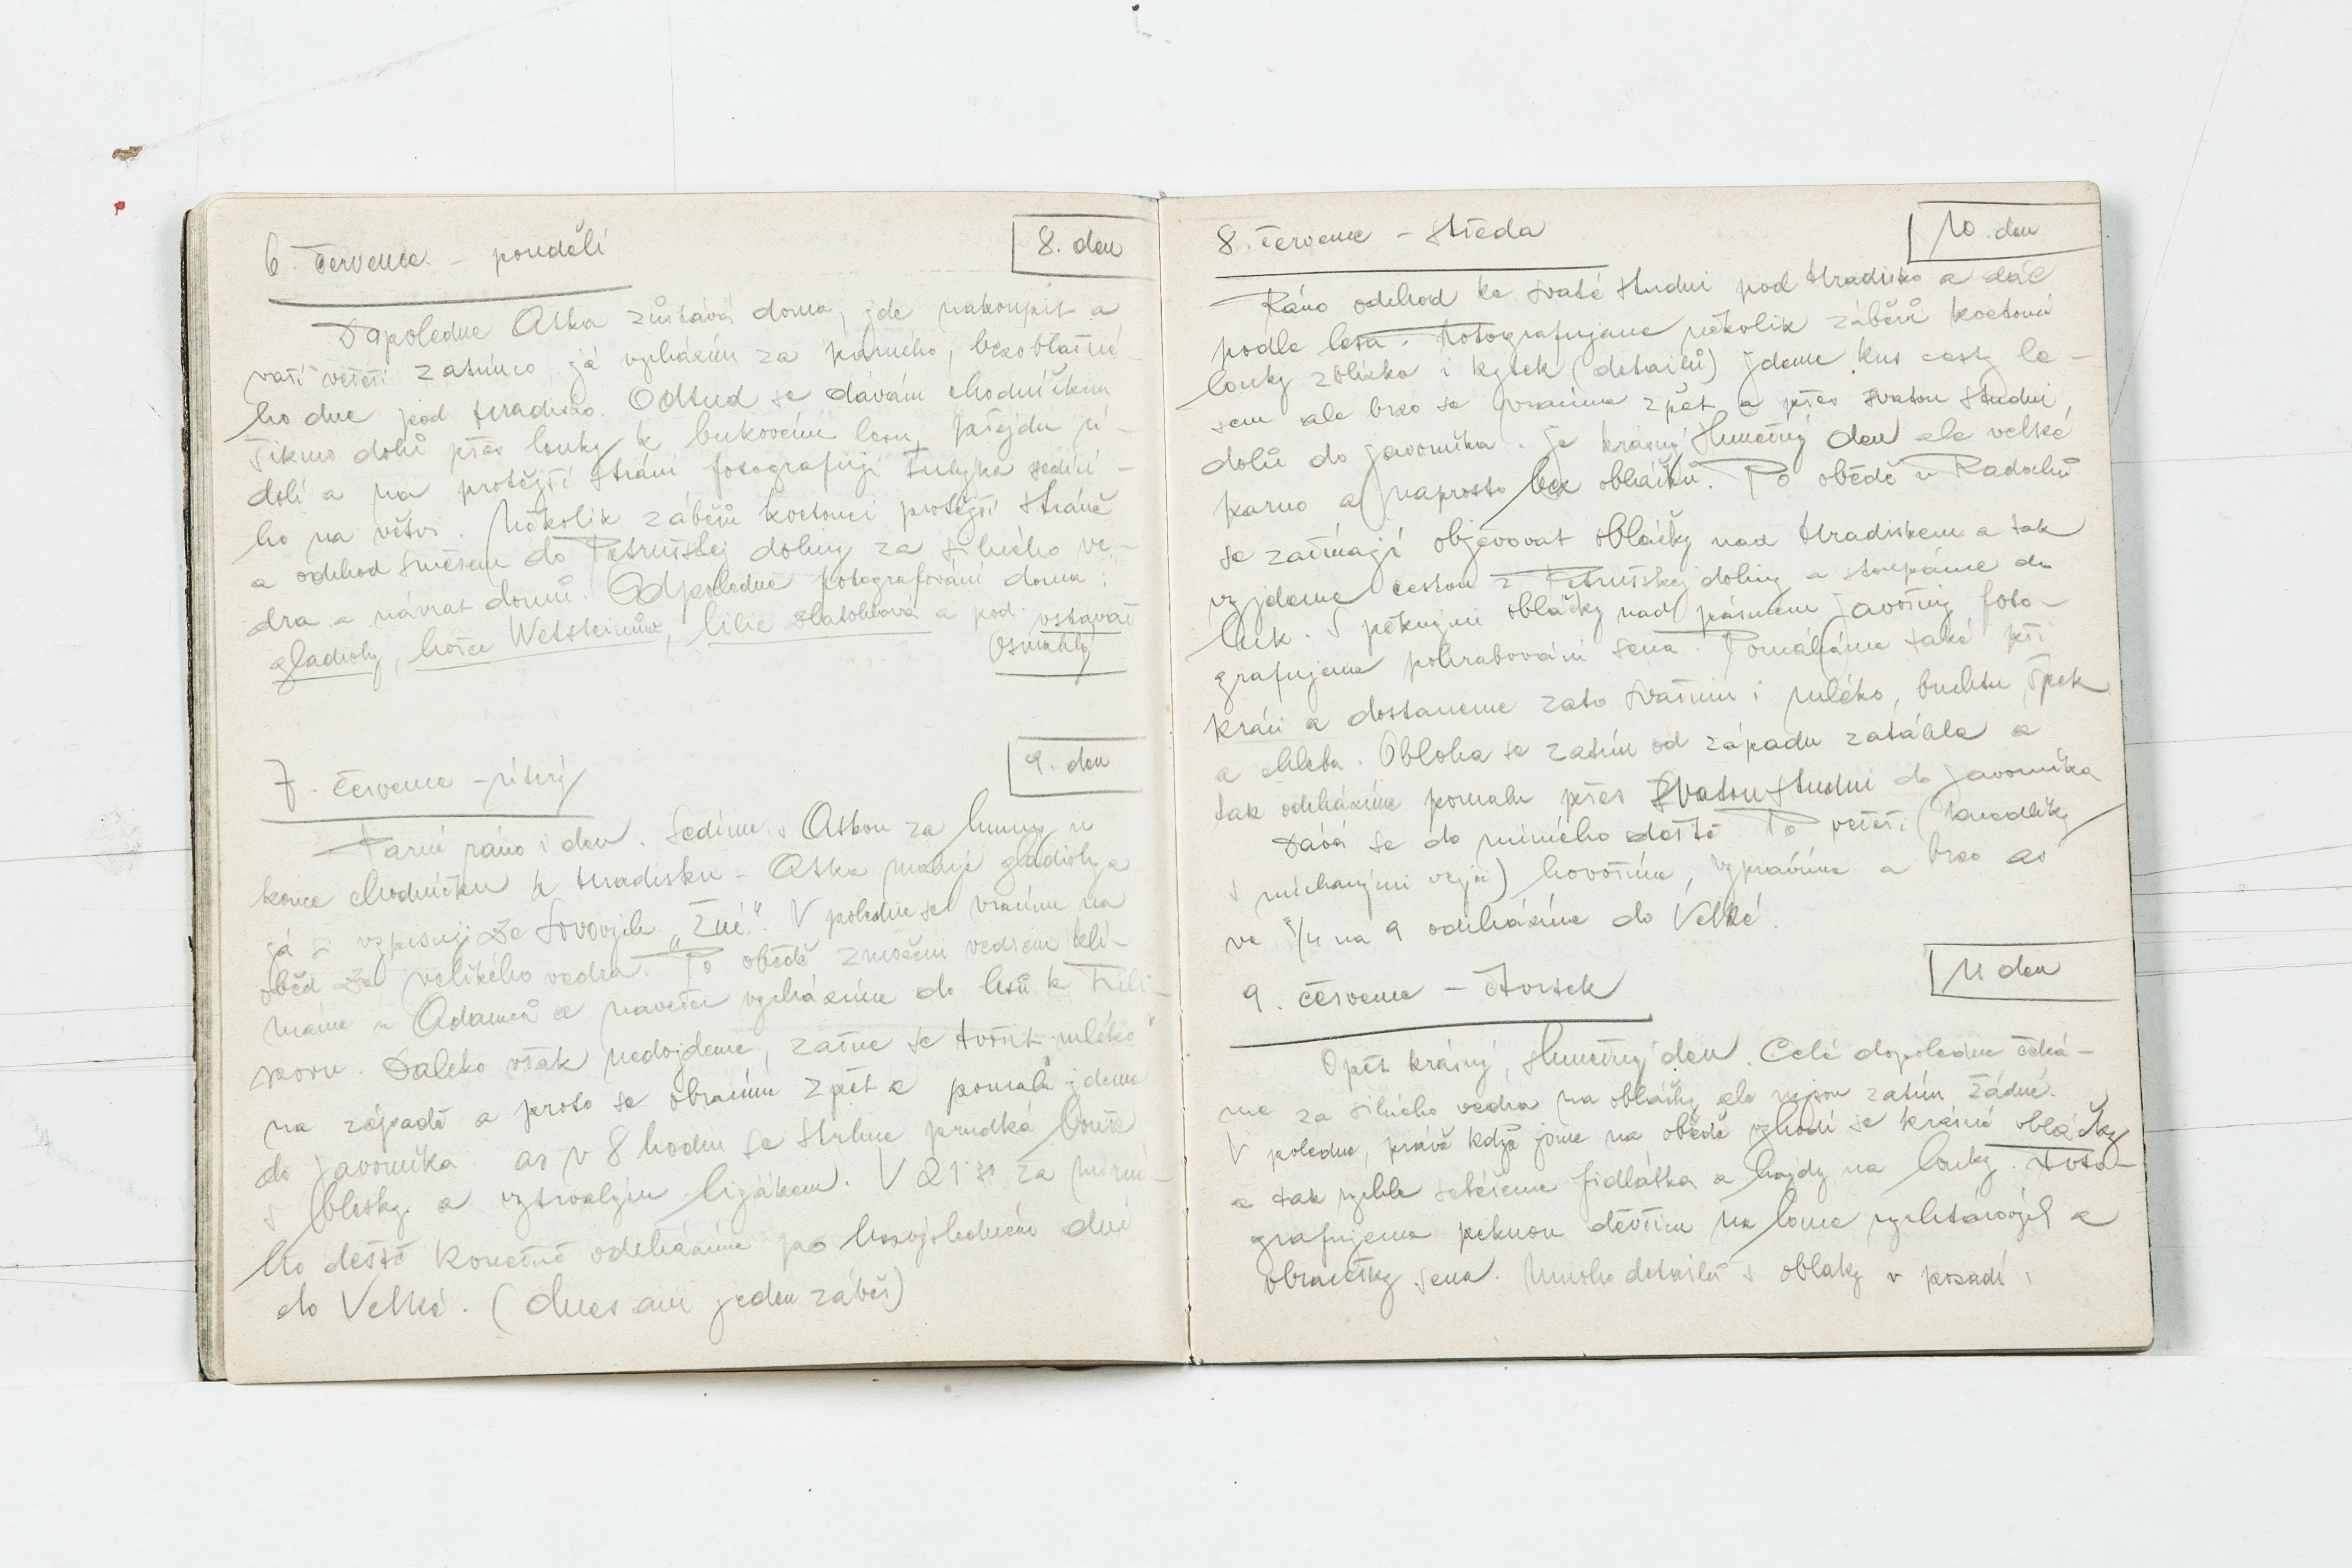 6. července - pondělí
8. den
Dopoledne Aska zůstává doma, jde nakoupit a
vaří večeři zatímco já vycházím za parného, bezoblačné-
ho dne pod Hradisko. Odtud se dávám chodníčkem
šikmo dolů přes louky k bukovému lesu, přejdu ú-
dolí a na protější stráni fotografuji Ťuhýka sedící-
ho na větvi. Několik záběrů kvetoucí protější stráně
a odchod směrem do Petrušskej doliny za silného ve-
dra a návrat domů. Odpoledne fotografování doma:
gladioly, hořce Wetsteinův, lilie zlatohlavá a pod. vstavač
Osmahlý
7. července - úterý
9. den
Parné ráno i den. Sedíme s Askou za humny u
konce chodníčku k Hradisku - Aska maluje gladioly a
já si vypisuji ze Sovových „Žní". V poledne se vracíme na
oběd za velikého vedra. Po obědě zmoženi vedrem klí-
máme u Adamců a navečer vycházíme do lesů k Fili-
povu. Daleko však nedojdeme, začne se tvořit "mléko"
na západě a proto se obracíme zpět a pomalu jdeme
do Javorníka. as v 8 hodin se strhne prudká bouře
s blesky a vytrvalým lijákem. V 21 za mírné-
ho deště konečně odcházíme po bezvýsledném dni
do Velké. (dnes ani jeden záběr)
8. července - středa
10. den
Ráno odchod ke svaté studni pod Hradisko a dál
podle lesa. Fotografujeme několik záběrů kvetoucí
louky zblízka i kytek (detailů) jdeme kus cesty le-
sem ale brzo se vracíme zpět a přes svatou studni
dolů do Javorníka. je krásný slunečný den ale velké
parno a naprosto bez obláčků. Po obědě u Radochů
se začínají objevovat obláčky nad Hradiskem a tak
vyjdeme cestou z Petrušskej doliny a stoupáme do
luk. S pěknými obláčky nad pásmem Javořiny foto-
grafujeme pohrabování sena. Pomáháme také při
kráci a dostaneme zato svačinu i mléko, buchtu, špek
a chleba. Obloha se zatím od západu zatáhla a
tak odcházíme pomalu přes Svatou studni do Javorníka
Dává se do mírného deště Po večeři (knedlíky
s míchanými vejci) hovoříme, vyprávíme a brzo as
ve ¾ na 9 odcházíme do Velké.
9. července - čtvrtek
11 den
Opět krásný, slunečný den. Celé dopoledne čeká-
me za silného vedra na obláčky ale nejsou zatím žádné.
V poledne, právě když jsme na obědě vyhodí se krásné obláčky
a tak rychle sebereme fidlátka a hajdy na louky. Foto-
grafujeme pěknou děvčicu na louce a
obracečky sena. Mnoho detailů s oblaky v pozadí,